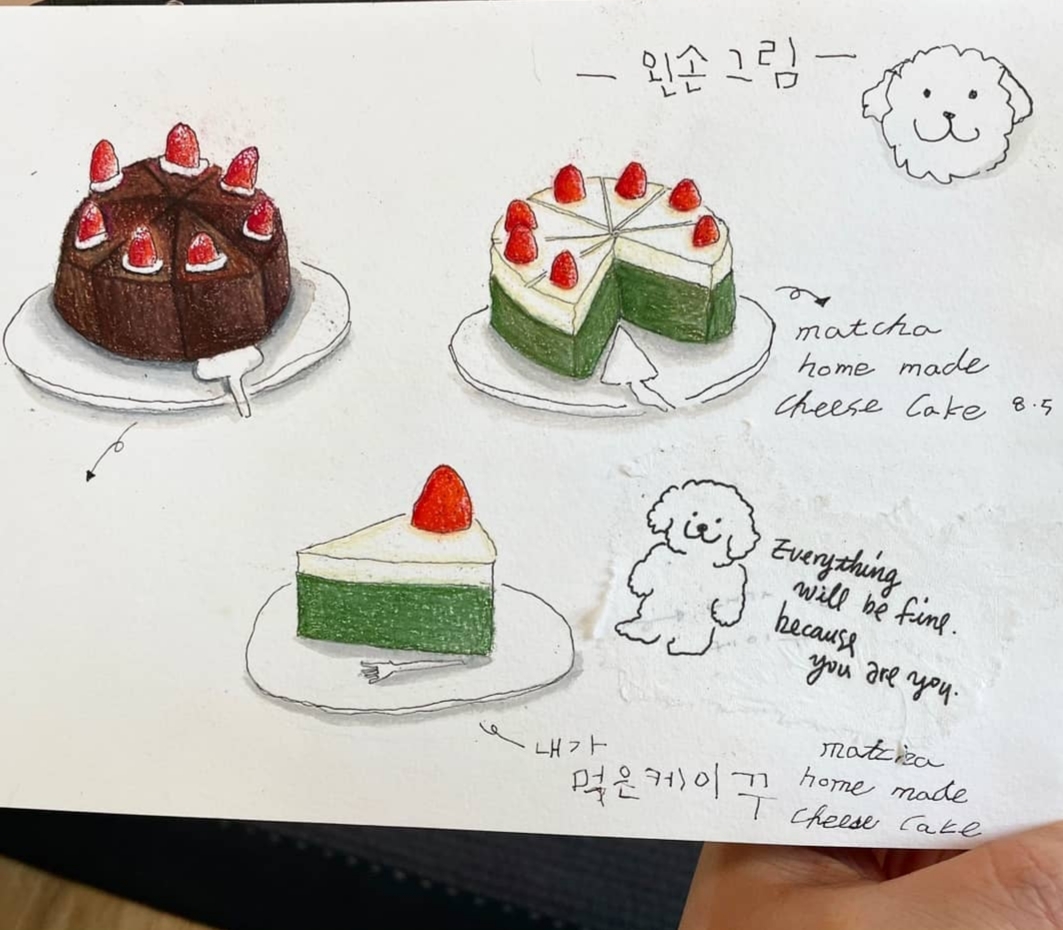 — 왼손그림 —
matcha
home made
cheese Cake 8.5
Everything
will be fine.
because
you are you.
내가
먹은케이꾸
home made
cheese Cake